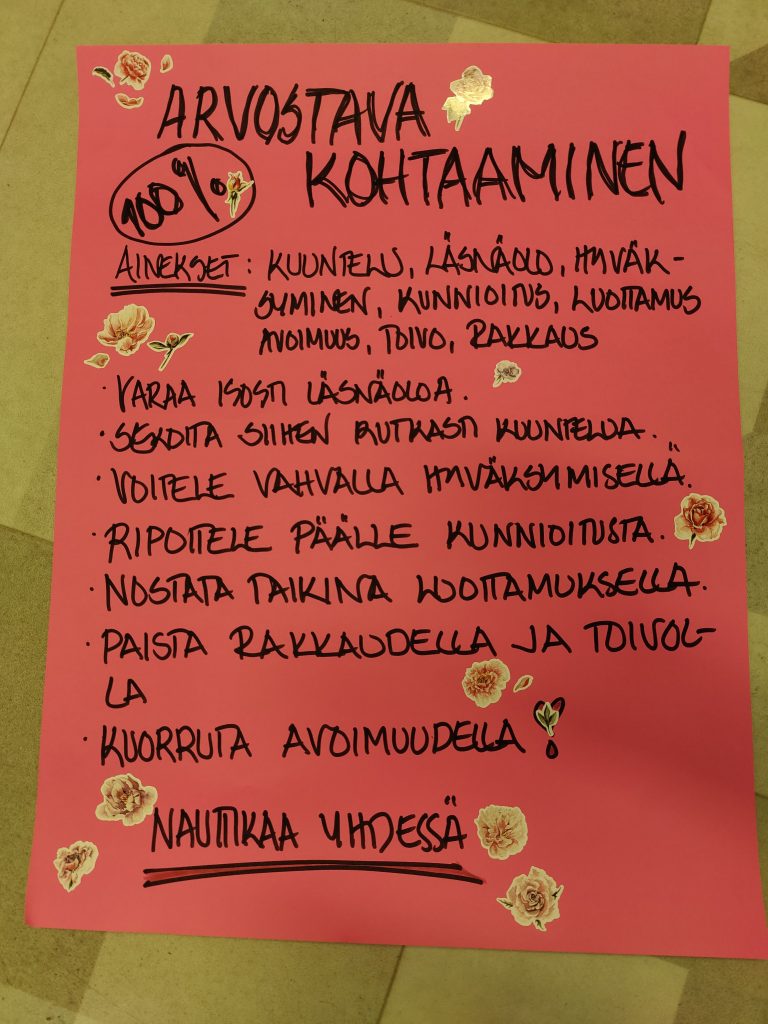 ARVOSTAVA
100% KOHTAAMINEN
AINEKSET: KUUNTELU, LÄSNÄOLO, HYVÄK-
SYMINEN, KUNNIOITUS, LUOTTAMUS
AVOIMUUS, TOIVO, RAKKAUS
· VARAA ISOSTI LÄSNÄOLOA.
· SEKOITA SIIHEN RUTKASTI KUUNTELUA.
· VOITELE VAHVALLA HYVÄKSYMISELLÄ.
· RIPOTTELE PÄÄLLE KUNNIOITUSTA.
· NOSTATA TAIKINA LUOTTAMUKSELLA.
· PAISTA RAKKAUDELLA JA TOIVOL-
LA
· KUORRUTA AVOIMUUDELLA!
NAUTTIKAA YHDESSÄ